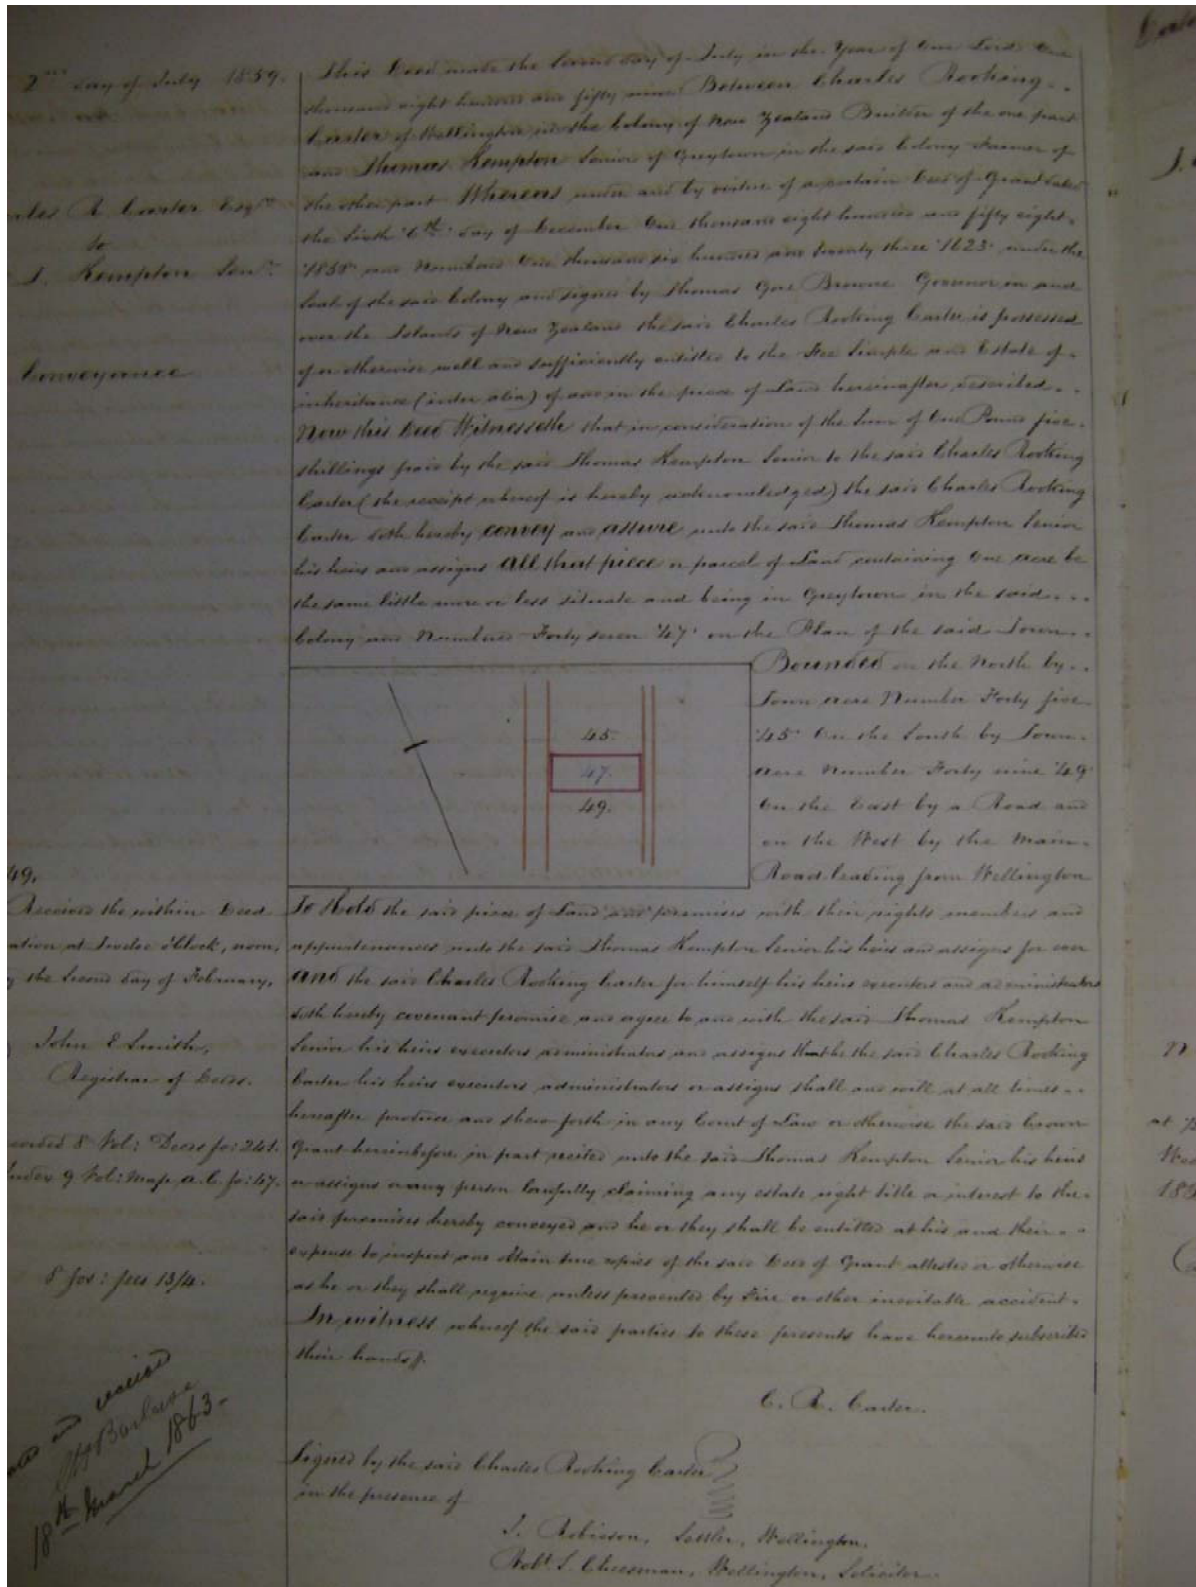 2nd day of July 1859.
Charles R Carter Esqre
to
T. Kempton Senr.
Conveyance
This Deed made the Second day of July in the Year of Our Lord One
thousand eight hundred and fifty nine Between Charles Rooking
Carter of Wellington in the Colony of New Zealand Builder of the one part
and Thomas Kempton Senior of Greytown in the said Colony Farmer of
the other part Whereas under and by virtue of a certain Deed of Grant dated
the Sixth '6th' day of December One thousand eight hundred and fifty eight
'1858' and Numbered One thousand six hundred and twenty three '1623' under the
Seal of the said Colony and signed by Thomas Gore Browne Governor in and
over the Islands of New Zealand the said Charles Rooking Carter is possessed
of or otherwise well and sufficiently entitled to the Fee Simple and Estate of
inheritance (inter alia) of and in the piece of Land hereinafter described
Now this Deed Witnesseth that in consideration of the Sum of One Pound five
shillings paid by the said Thomas Kempton Senior to the said Charles Rooking
Carter (the receipt whereof is hereby acknowledged) the said Charles Rooking
Carter doth hereby convey and assure unto the said Thomas Kempton Senior
his heirs and assigns All that piece or parcel of Land containing One acre be
the same little more or less situate and being in Greytown in the said
Colony and Numbered Forty seven '47' on the Plan of the said Town
Bounded on the North by
Town acre Number Forty five
'45' On the South by Town
acre Number Forty nine '49'
On the East by a Road and
on the West by the Main
Road leading from Wellington
45.
47.
49.
To Hold the said piece of Land and premises with their rights members and
appurtenances unto the said Thomas Kempton Senior his heirs and assigns for ever
And the said Charles Rooking Carter for himself his heirs executors and administrators
doth hereby covenant promise and agree to and with the said Thomas Kempton
Senior his heirs executors administrators and assigns that he the said Charles Rooking
Carter his heirs executors administrators or assigns shall and will at all times
hereafter produce and shew forth in any Court of Law or otherwise the said Crown
Grant hereinbefore in part recited unto the said Thomas Kempton Senior his heirs
or assigns or any person lawfully claiming any estate right title or interest to the
said premises hereby conveyed and he or they shall be entitled at his and their
expense to inspect and obtain true copies of the said Deed of Grant attested or otherwise
as he or they shall require unless prevented by Fire or other inevitable accident.
In witness whereof the said parties to these presents have hereunto subscribed
their hands.
C. R. Carter.
Signed by the said Charles Rooking Carter
in the presence of
J. Robieson, Settler, Wellington.
Robt. S. Cheesman, Wellington, Solicitor.
49.
Received the within Deed
ation at Twelve o'Clock, noon,
the Second day of February,
John E Smith,
Registrar of Deeds.
corded 8 Vol: Deeds fo: 241.
Index 9 Vol: Maps a.c. fo: 47.
8 fos: fees 13/4.
and received
18th March 1863